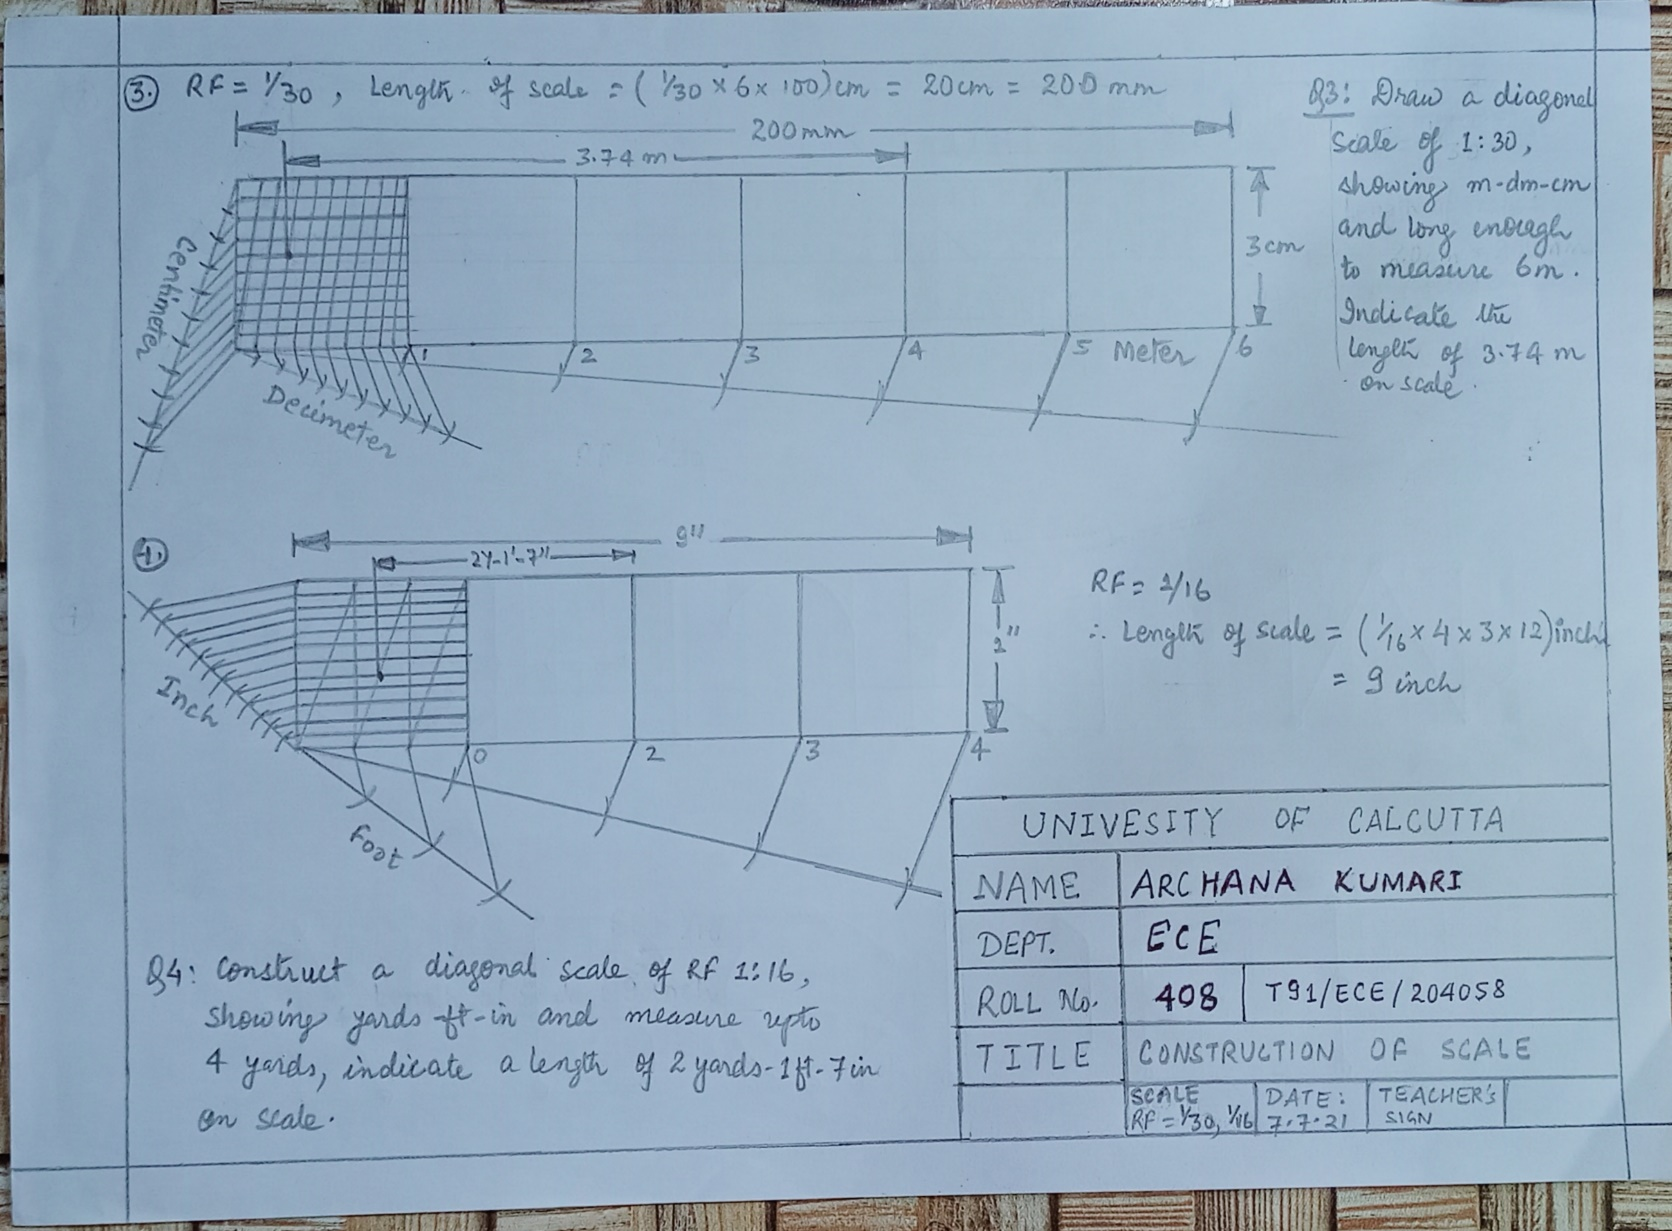 3. RF = 1/30 , Length of scale = ( 1/30 × 6 × 100) cm = 20 cm = 200 mm
200mm
3.74 m
3 cm
Centimeter
Decimeter
1 2 3 4 5 Meter 6
Q3: Draw a diagonal
scale of 1:30,
showing m-dm-cm
and long enough
to measure 6m.
Indicate the
length of 3.74 m
on scale.
4.
9"
2Y-1'-7"
2"
Inch
Foot
0 2 3 4
RF = 1/16
∴ Length of scale = ( 1/16 × 4 × 3 × 12) inch
= 9 inch
Q4: Construct a diagonal scale of RF 1:16,
showing yards-ft-in and measure upto
4 yards, indicate a length of 2 yards-1ft-7in
on scale.
UNIVESITY OF CALCUTTA
NAME ARCHANA KUMARI
DEPT. ECE
ROLL No. 408 T91/ECE/204058
TITLE CONSTRUCTION OF SCALE
SCALE DATE: TEACHER'S
RF = 1/30, 1/16 7.7.21 SIGN